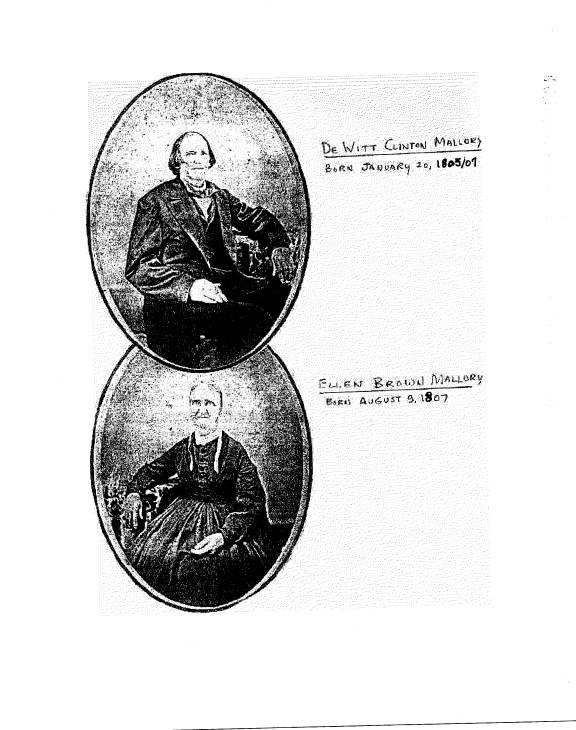 De Witt Clinton Mallory
Born January 20, 1805/07
Ellen Brown Mallory
Born August 9, 1807